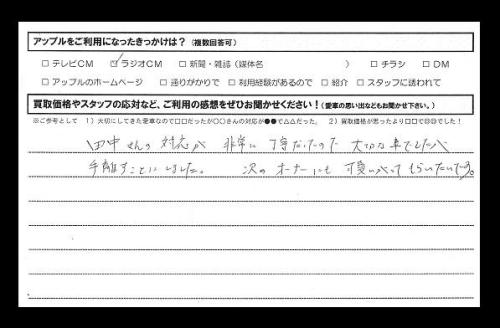 アップルをご利用になったきっかけは？（複数回答可）
□ テレビCM ☑ ラジオCM □ 新聞・雑誌（媒体名 ） □ チラシ □ DM
□ アップルのホームページ □ 通りがかりで □ 利用経験があるので □ 紹介 □ スタッフに誘われて
買取価格やスタッフの応対など、ご利用の感想をぜひお聞かせください！（愛車の思い出などもお聞かせ下さい。）
※ご参考として 1）大切にしてきた愛車なので□□だったが○○さんの対応が●●で△△だった。 2）買取価格が思ったより□□で◎◎でした！
田中さんの対応が 非常に丁寧だったので 大切な車でしたが
手離すことにしました。 次のオーナーにも 可愛いがってもらいたいです。